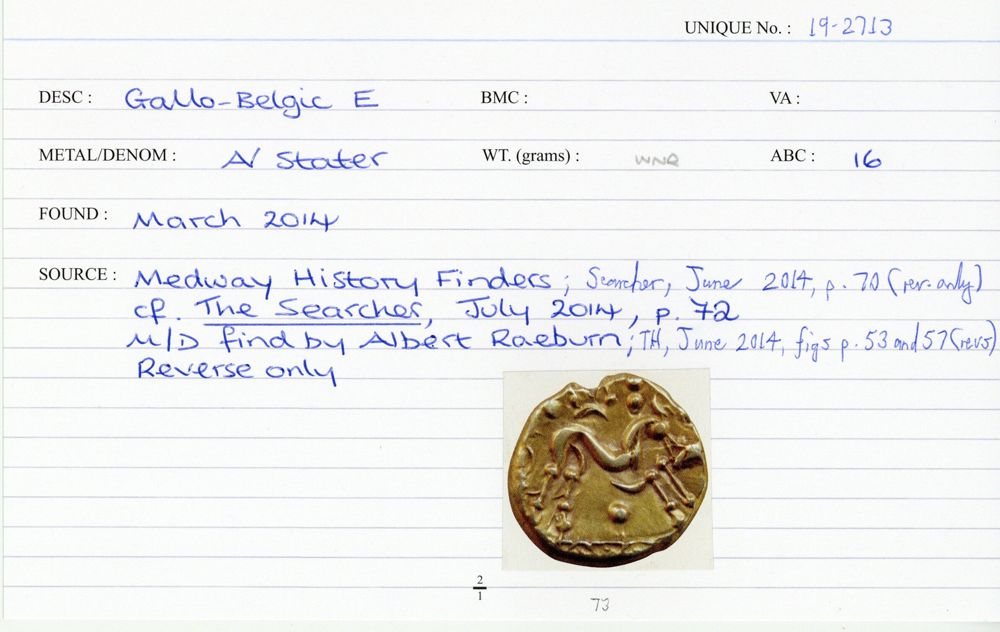 UNIQUE No. : 19-2713
DESC : Gallo-Belgic E BMC : VA :
METAL/DENOM : A/ Stater WT. (grams) : WNR ABC : 16
FOUND : March 2014
SOURCE : Medway History Finders; Searcher, June 2014, p. 70 (rev. only)
cf. The Searcher, July 2014, p. 72
M/D find by Albert Raeburn; TH, June 2014, figs p. 53 and 57 (revs)
Reverse only
2
1
73